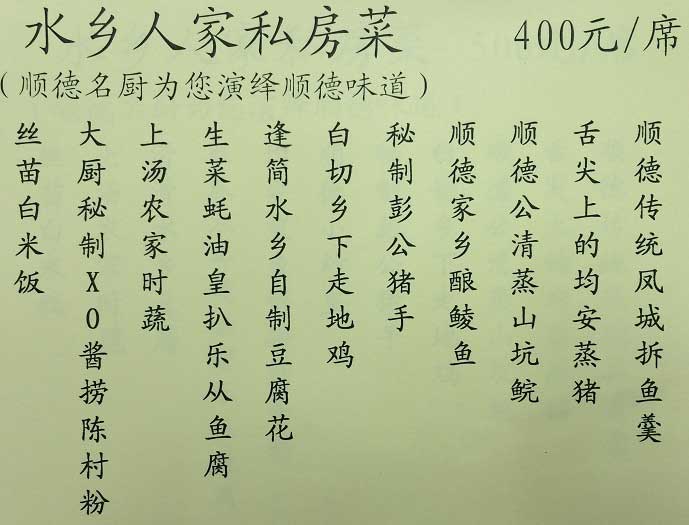 水乡人家私房菜 400元/席
(顺德名厨为您演绎顺德味道)
顺德传统凤城拆鱼羹
舌尖上的均安蒸猪
顺德公清蒸山坑鲩
顺德家乡酿鲮鱼
秘制彭公猪手
白切乡下走地鸡
逢简水乡自制豆腐花
生菜蚝油皇扒乐从鱼腐
上汤农家时蔬
大厨秘制XO酱捞陈村粉
丝苗白米饭